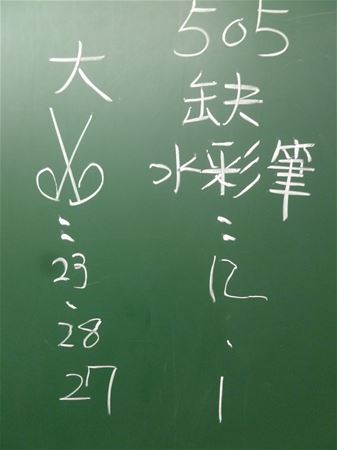 505
缺
水彩筆
:
12
、
1
大
:
23
、
28
27